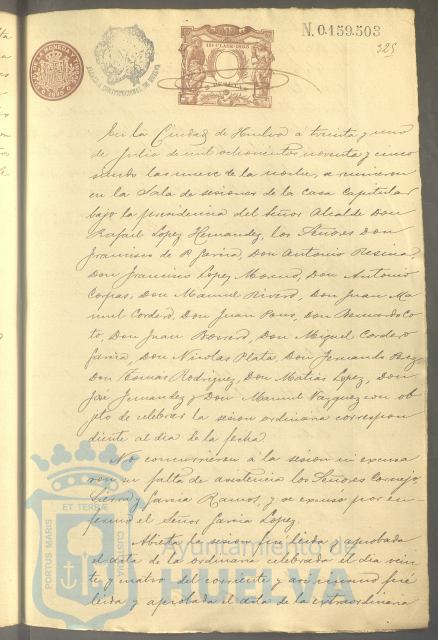 N. 0.159.503
325
11ª CLASE-1895
En la Ciudad de Huelva a treinta y uno
de Julio de mil ochocientos noventa y cinco
siendo las nueve de la noche, se reunieron
en la Sala de sesiones de la Casa Capitular
bajo la presidencia del Señor Alcalde Don
Rafael Lopez Hernandez, los Señores Don
Francisco de P. Garcia, Don Antonio Resina,
Don Francisco Lopez Moreno, Don Antonio
Corpas, Don Manuel Rivero, Don Juan Ma
nuel Cordero, Don Juan Pons, Don Bernardo Co
to, Don Juan Borrero, Don Miguel Cordero
Garcia, Don Nicolas Plata, Don Fernando
Don Tomas Rodriguez, Don Matias Lopez, Don
José Fernandez y Don Manuel Vazquez con ob
jeto de celebrar la sesion ordinaria correspon
diente al dia de la fecha.
No concurrieron a la sesion ni excusa
ron su falta de asistencia los Señores Cornejo,
Garcia Ramos, y se excusó por en
fermo el Señor Garcia Lopez.
Abierta la sesion fue leida y aprobada
el acta de la ordinaria celebrada el dia vein
te y cuatro del corriente y asi mismo fué
leida y aprobada el acta de la extraordinaria
PORTUS MARIS
ET TERRÆ
CUSTODIA
Ayuntamiento de
HUELVA